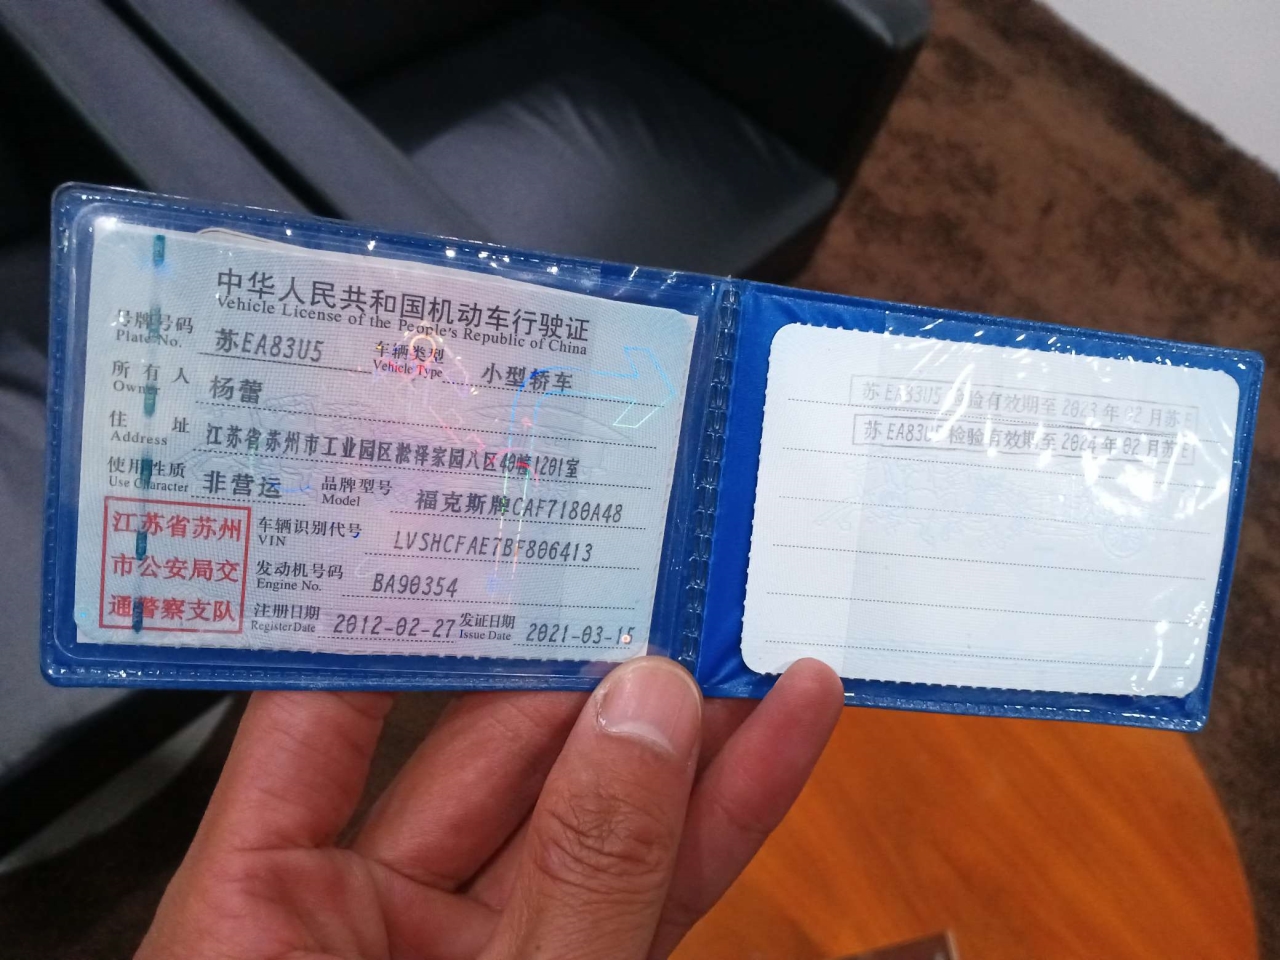 中华人民共和国机动车行驶证
Vehicle License of the People's Republic of China
号牌号码 苏EA83U5 车辆类型 小型轿车
Plate No. Vehicle Type
所有人 杨蕾
Owner
住址 江苏省苏州市工业园区淞泽家园八区40幢1201室
Address
使用性质 非营运 品牌型号 福克斯牌CAF7180A48
Use Character Model
江苏省苏州
市公安局交
通警察支队
车辆识别代号 LVSHCFAE7BF806413
VIN
发动机号码 BA90354
Engine No.
注册日期 2012-02-27 发证日期 2021-03-15
Register Date Issue Date
苏EA83U5 检验有效期至 2023年02月苏E
苏EA83U5 检验有效期至 2024年02月苏E